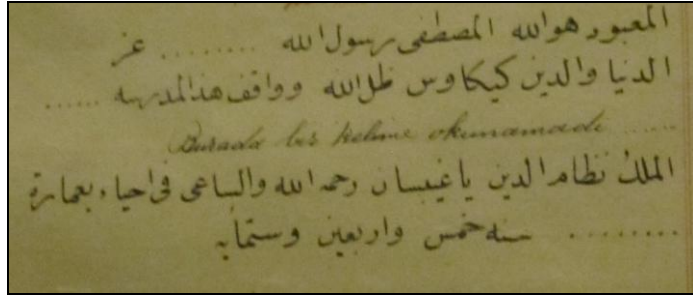 المعبود هو الله المصطفى رسول الله ......... عز
الدنيا والدين كيكاوس ظل الله وواقف هذا لمدرسه ......
Burada bir kelime okunamadı ......
الملك نظام الدين ياغيبسان رحمه الله والساعى فى احياء بعمارة
......... سنه خمس واربعين وستمايه